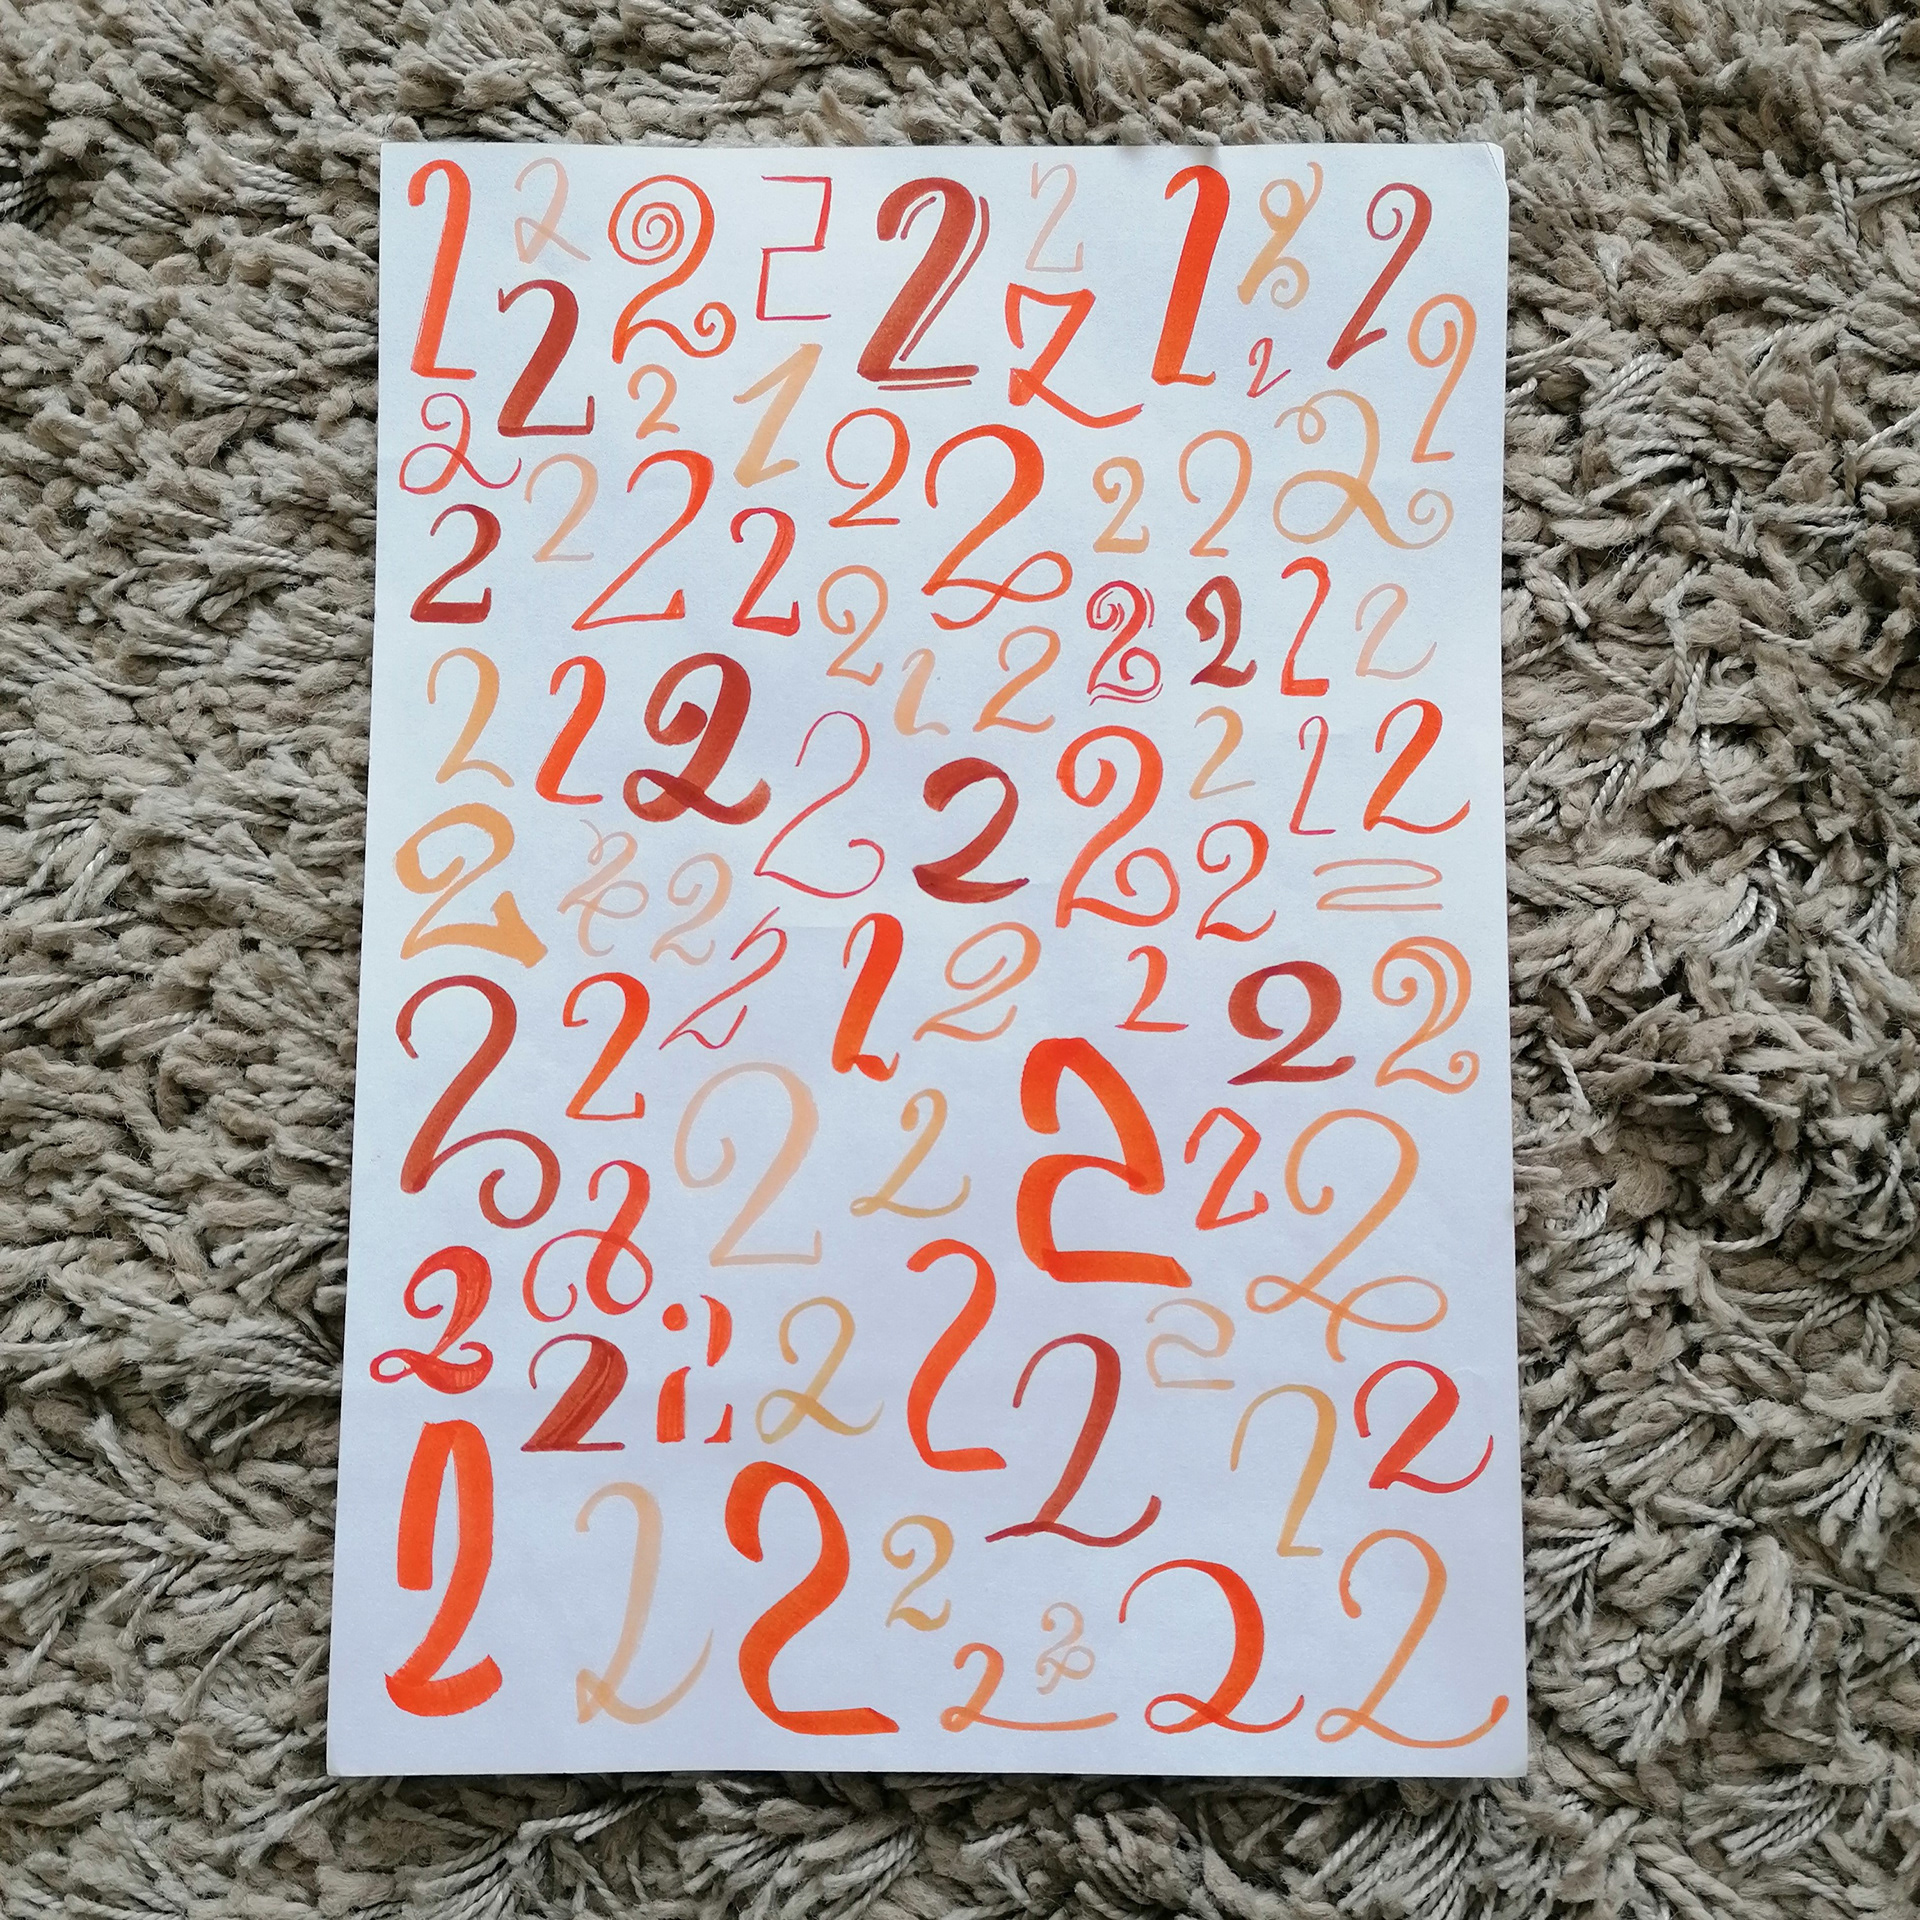 2 2 2 2 2 2 2 2 2
2 2 2 2 2 2
2 2 2 2 2 2 2 2
2 2 2 2 2 2 2
2 2 2 2 2 2 2 2
2 2 2 2 2 2 2 2
2 2 2 2 2 2 2 2
2 2 2 2 2 2
2 2 2 2 2 2 2 2 2
2 2 2 2 2 2 2 2